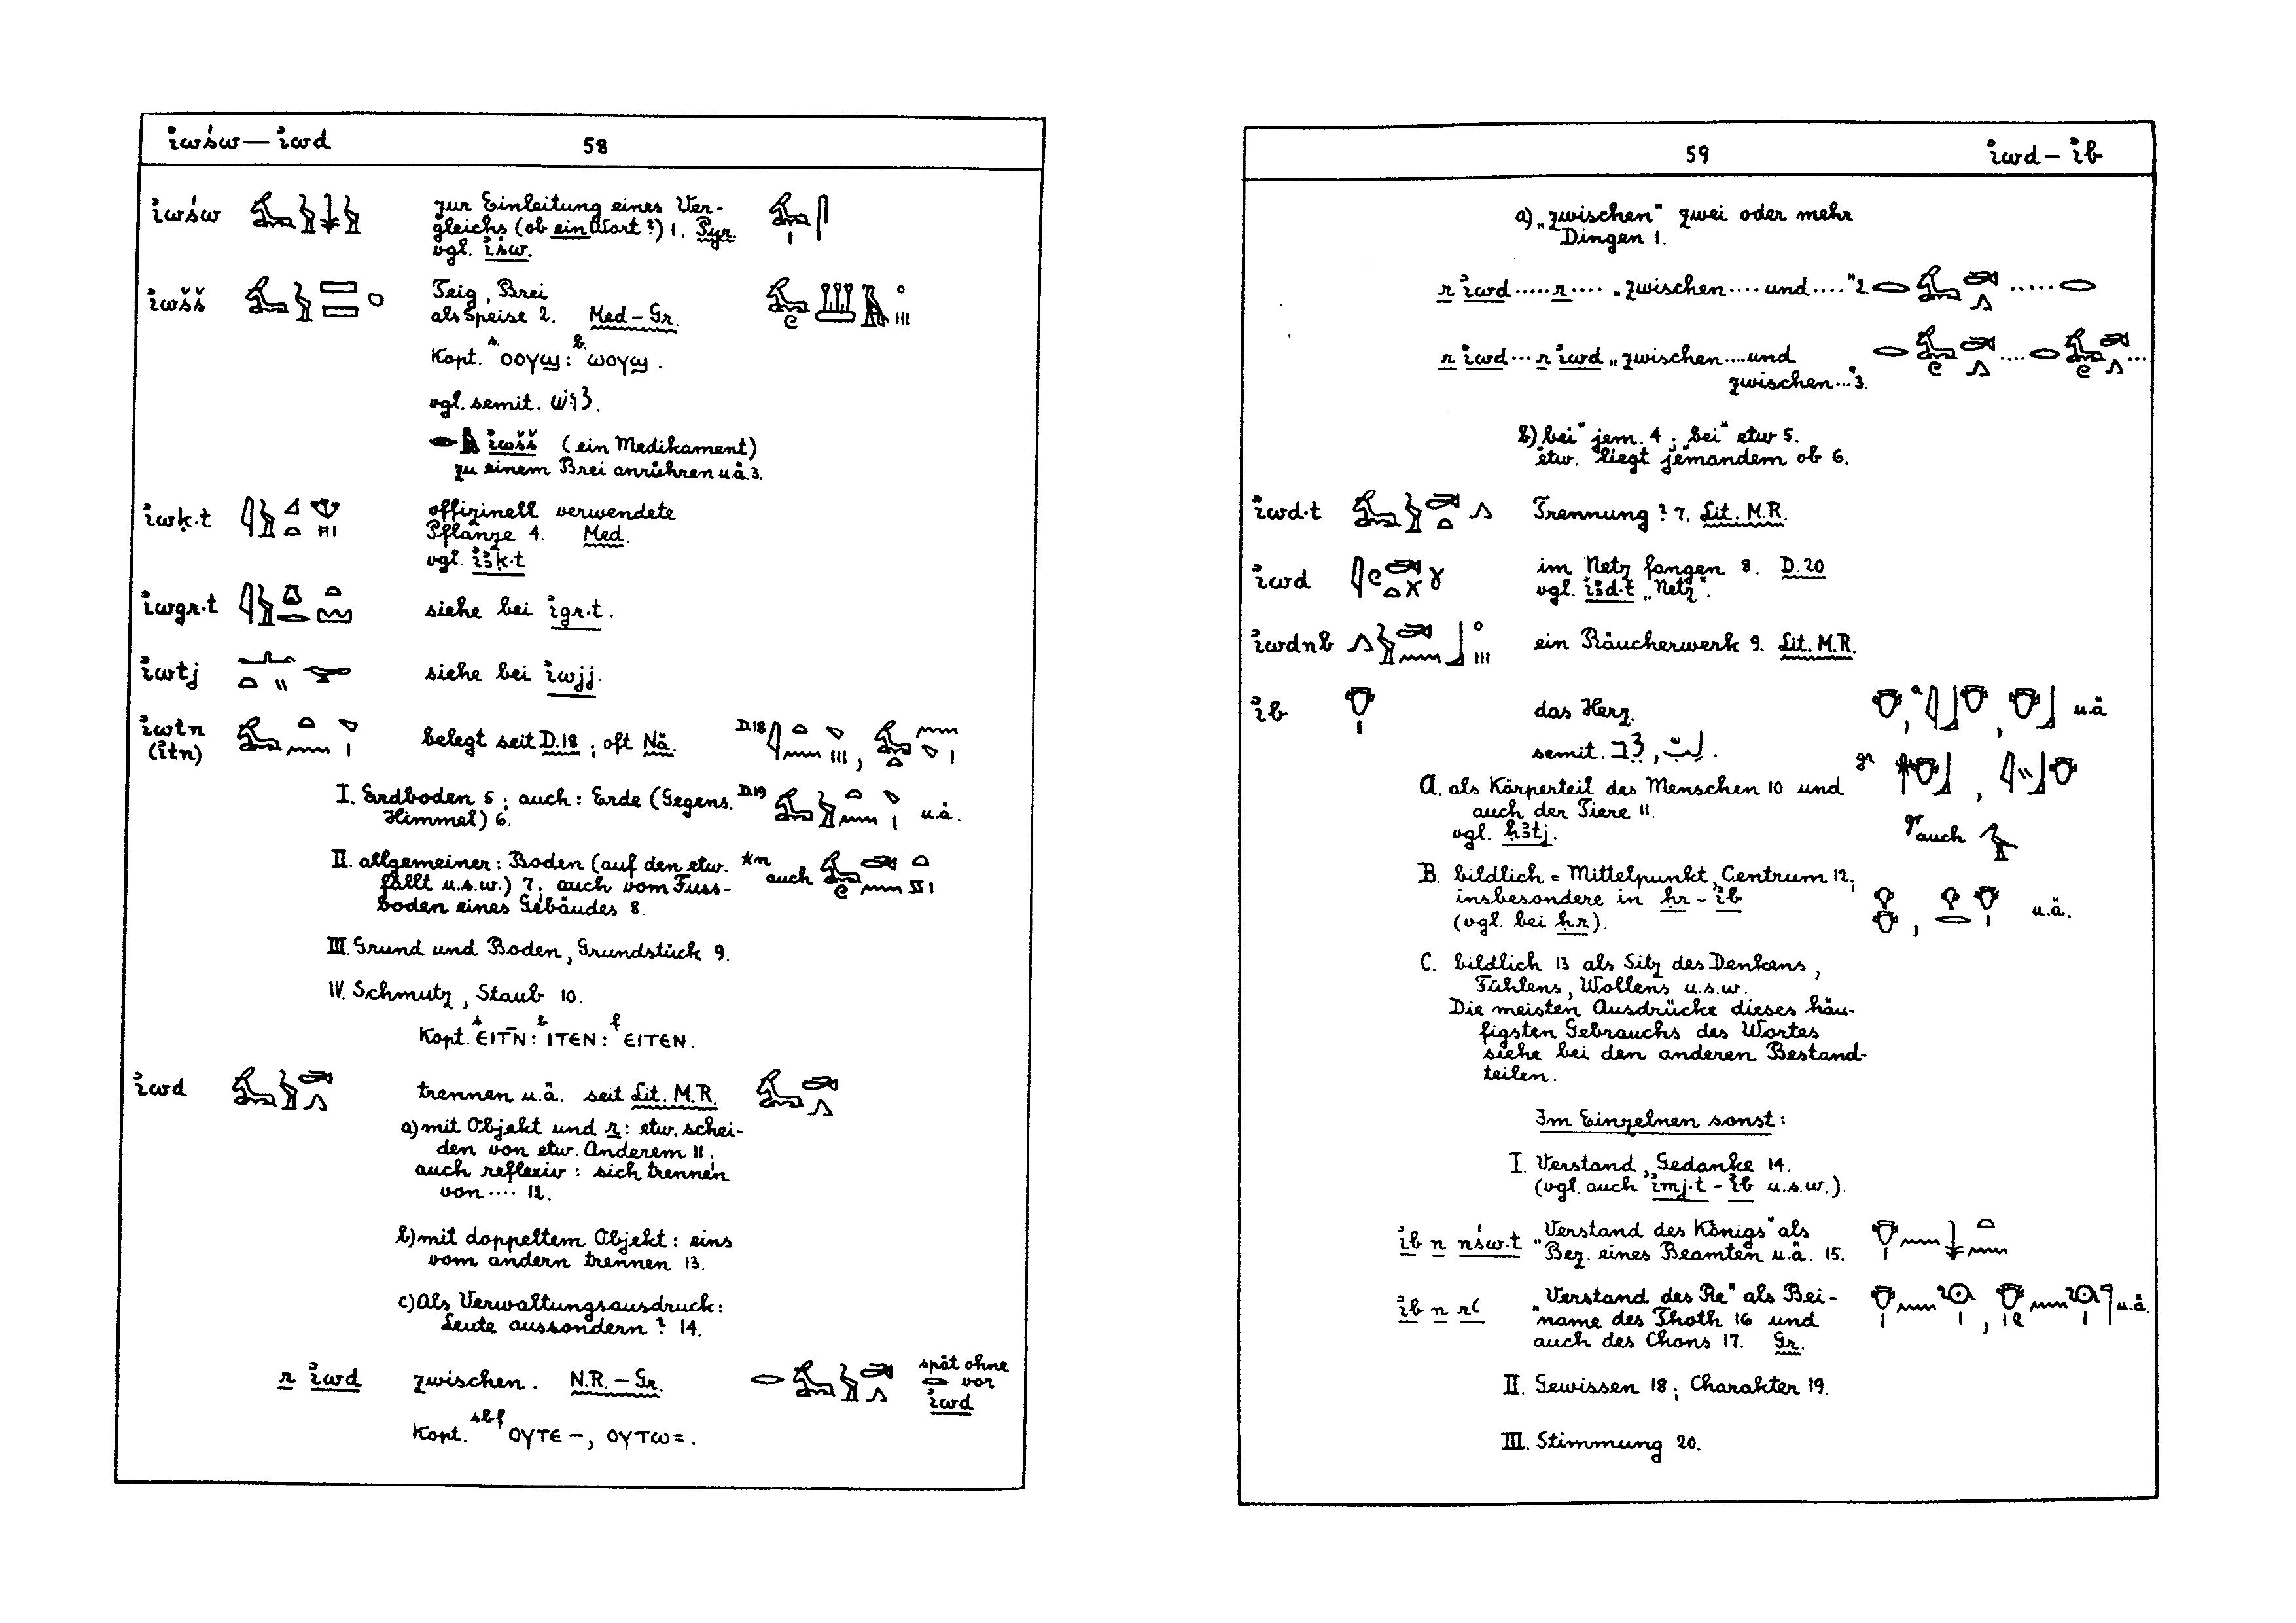 ı͗wśw — ı͗wd
58
ı͗wśw
zur Einleitung eines Ver-
gleichs (ob ein Wort?) 1. Pyr.
vgl. ı͗św.
ı͗wšš
Teig, Brei
als Speise 2. Med-Gr.
Kopt. s. ⲟⲟⲩϣ: b. ⲱⲟⲩϣ.
vgl. semit.
ı͗wšš (ein Medikament)
zu einem Brei anrühren u.ä. 3.
ı͗wḳ·t
offizinell verwendete
Pflanze 4. Med.
vgl. ı͗ꜣḳ·t
ı͗wgr·t
siehe bei ı͗gr·t.
ı͗wtj
siehe bei ı͗wjj.
ı͗wtn
(ı͗tn)
belegt seit D.18; oft Nä. D.18
I. Erdboden 5; auch: Erde (Gegens. D.19 u.ä.
Himmel) 6.
II. allgemeiner: Boden (auf den etw. *n auch
fällt u.s.w.) 7; auch vom Fuss-
boden eines Gebäudes 8.
III. Grund und Boden, Grundstück 9.
IV. Schmutz, Staub 10.
Kopt. s ⲉⲓⲧⲛ̄: b ⲓⲧⲉⲛ: f ⲉⲓⲧⲉⲛ.
ı͗wd
trennen u.ä. seit Lit. M.R.
a) mit Objekt und r: etw. schei-
den von etw. Anderem 11.
auch reflexiv: sich trennen
von .... 12.
b) mit doppeltem Objekt: eins
vom andern trennen 13.
c) Als Verwaltungsausdruck:
Leute aussondern? 14.
r ı͗wd zwischen. N.R. – Gr.
spät ohne
vor
ı͗wd
Kopt. sbf ⲟⲩⲧⲉ–, ⲟⲩⲧⲱ=.
59
ı͗wd – ı͗b
a) „zwischen" zwei oder mehr
Dingen 1.
r ı͗wd ..... r .... „zwischen .... und ...." 2.
r ı͗wd ... r ı͗wd „zwischen .... und
zwischen ..." 3.
b) „bei" jem. 4; „bei" etw 5.
etw. liegt jemandem ob 6.
ı͗wd·t
Trennung? 7. Lit. M.R.
ı͗wd
im Netz fangen 8. D.20
vgl. ı͗ꜣd·t „Netz".
ı͗wdnb
ein Räucherwerk 9. Lit. M.R.
ı͗b
das Herz. u.ä
semit. לב, لب.
gr
A. als Körperteil des Menschen 10 und
auch der Tiere 11.
vgl. ḥꜣtj.
gr auch
B. bildlich = Mittelpunkt, Centrum 12;
insbesondere in ḥr-ı͗b u.ä.
(vgl. bei ḥr).
C. bildlich 13 als Sitz des Denkens,
Fühlens, Wollens u.s.w.
Die meisten Ausdrücke dieses häu-
figsten Gebrauchs des Wortes
siehe bei den anderen Bestand-
teilen.
Im Einzelnen sonst:
I. Verstand, Gedanke 14.
(vgl. auch ı͗mj·t-ı͗b u.s.w.).
ı͗b n nśw·t „Verstand des Königs" als
Bez. eines Beamten u.ä. 15.
ı͗b n rꜥ „Verstand des Re" als Bei- u.ä.
name des Thoth 16 und
auch des Chons 17. Gr.
II. Gewissen 18; Charakter 19.
III. Stimmung 20.